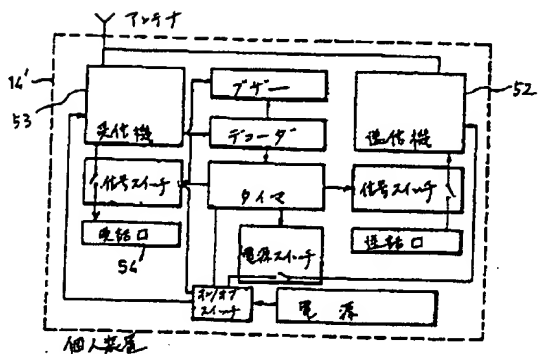 アンテナ
14'
53
52
ブザー
受信機
デコーダ
送信機
信号スイッチ
タイマ
信号スイッチ
受話口
54
電源スイッチ
送話口
オン/オフ
スイッチ
電源
個人装置